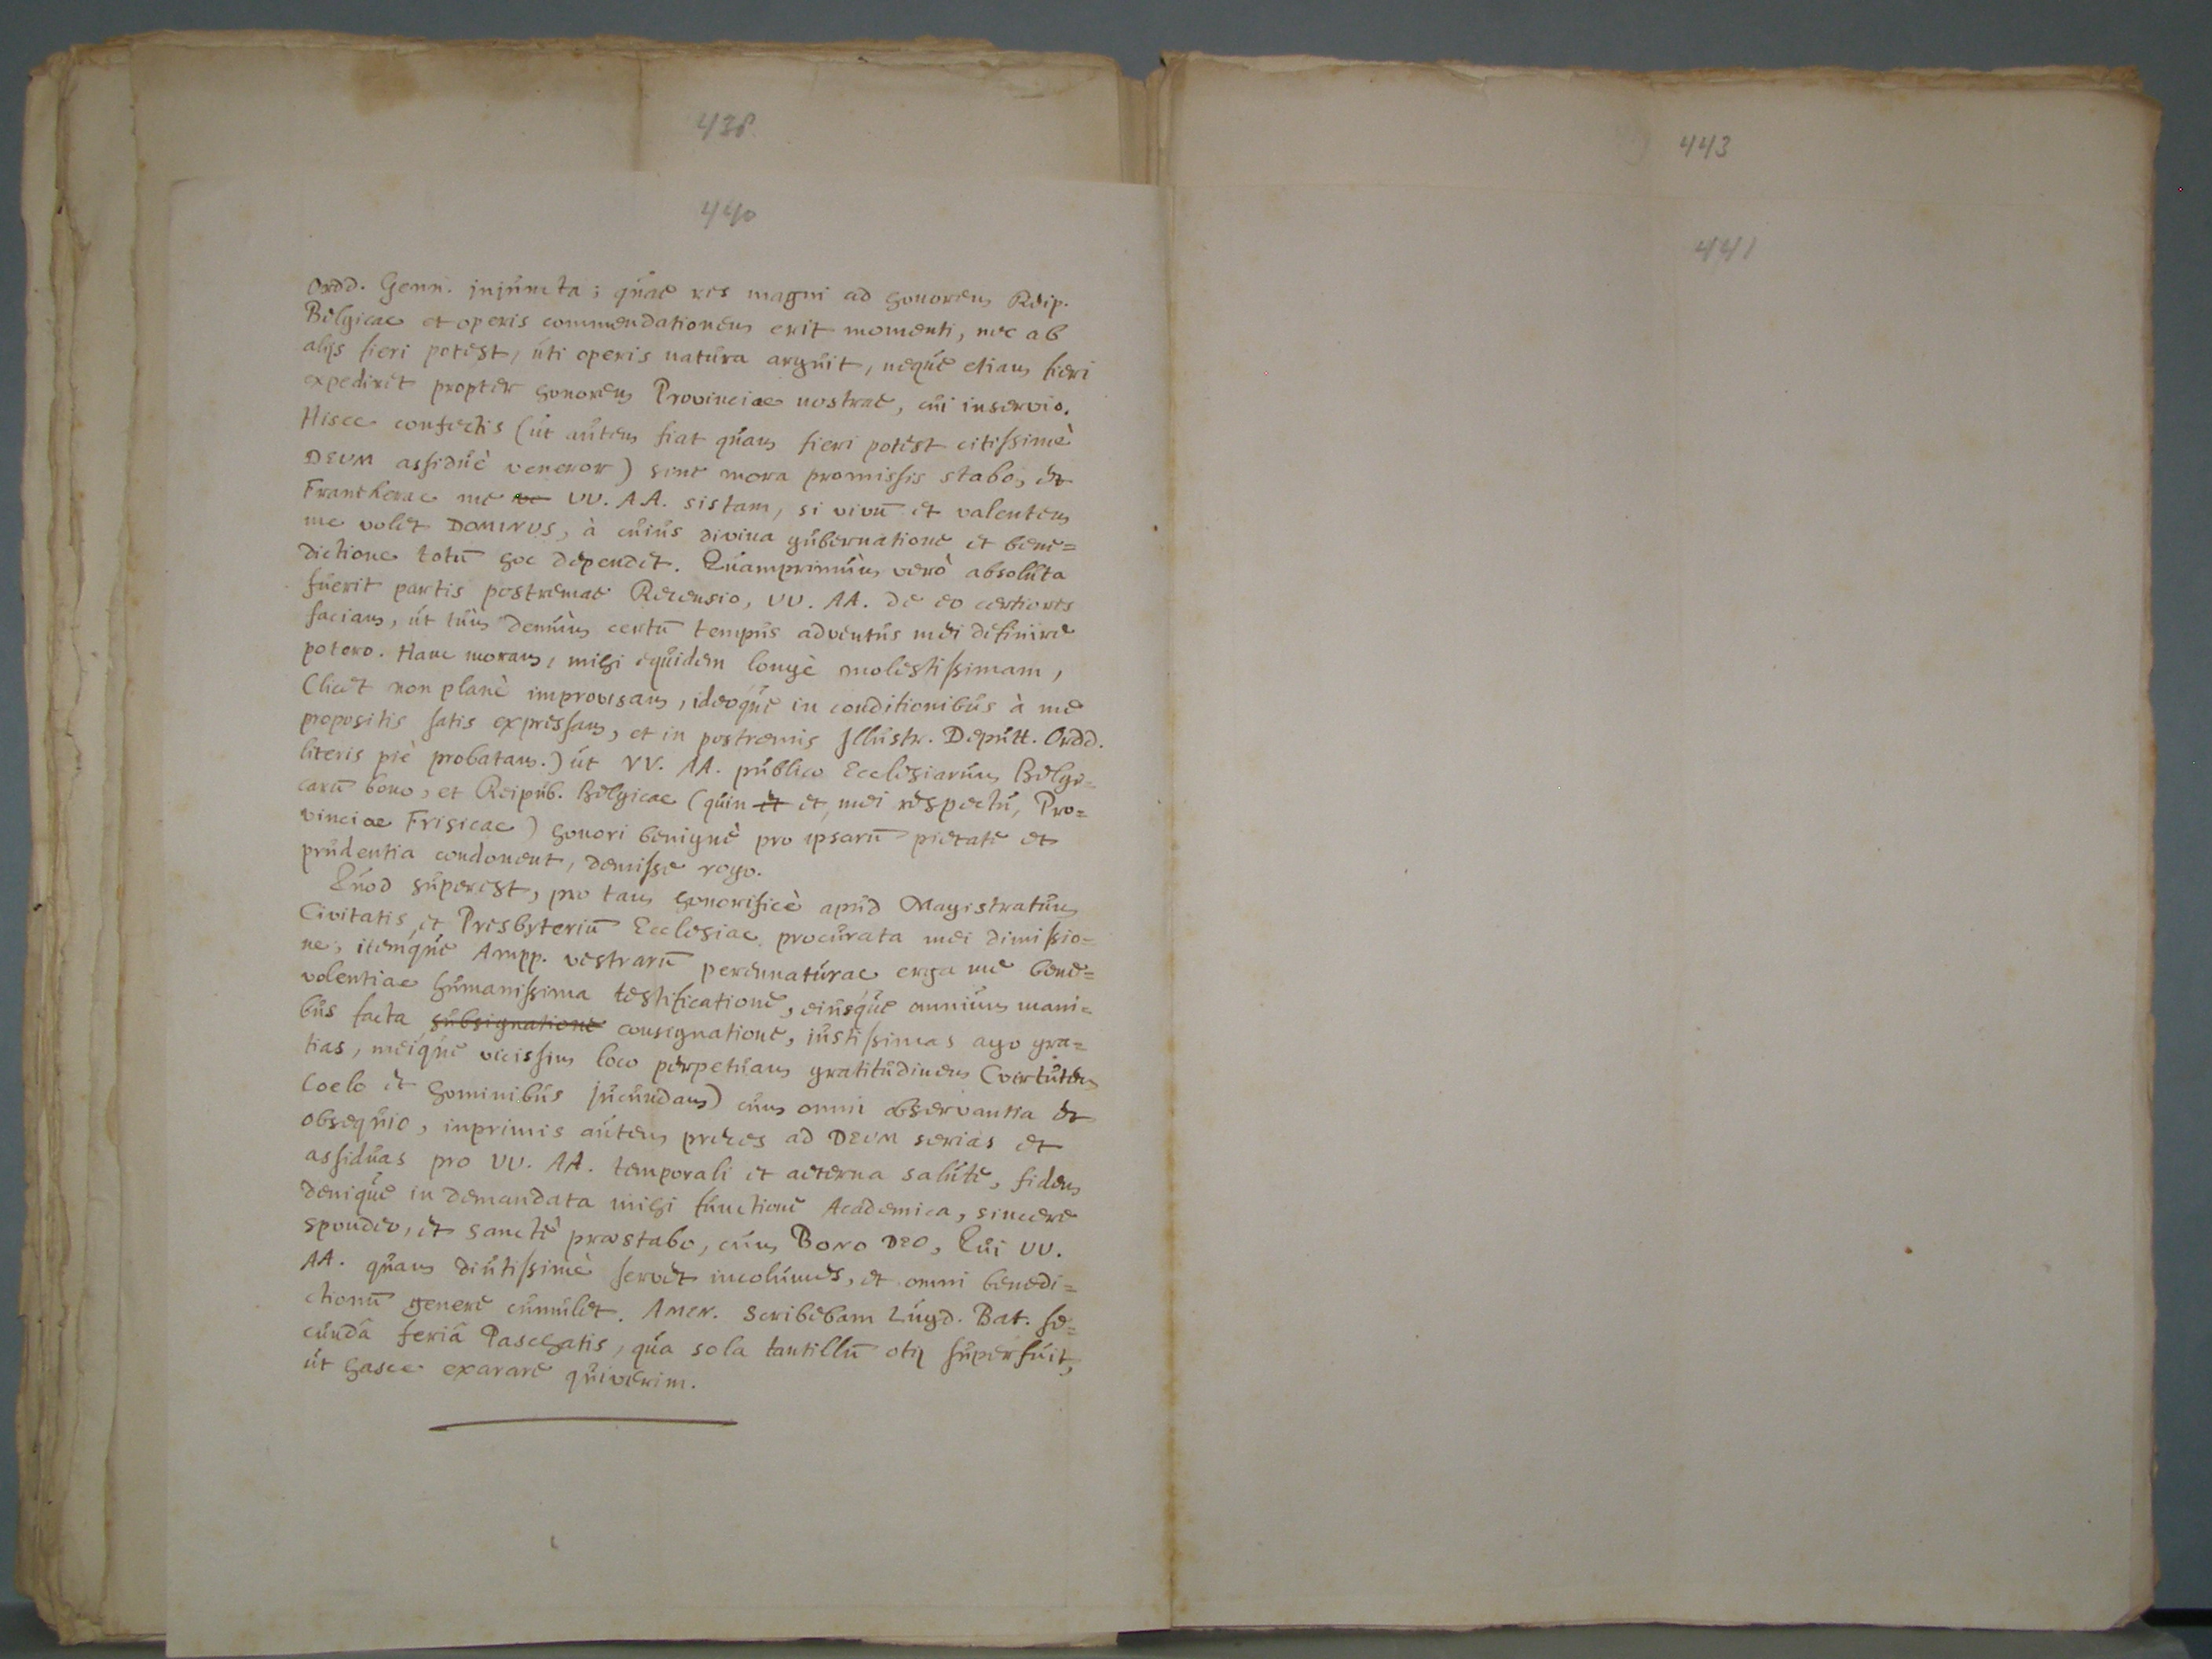 438
440
Ordd. Genn. injuncta; quae res magni ad honorem Reip.
Belgicae et operis commendationem erit momenti, nec ab
alijs fieri potest, uti operis natura arguit, neque etiam fieri
expediret propter honorem Provinciae nostrae, cui inservio.
Hisce confectis (ut autem fiat quam fieri potest citissimè
DEUM assiduè veneror) sine mora promissis stabo, et
Franekerae me VV. AA. sistam, si vivū et valentem
me volet DOMINUS, à cuius divina gubernatione et bene=
dictione totū hoc dependet. Quamprimùm verò absoluta
fuerit partis postremae Recensio, VV. AA. de eo certiores
faciam, ut tùm demùm certū tempus adventus mei definire
potero. Hanc moram, mihi equidem longè molestissimam,
(licet non planè improvisam, ideoque in conditionibus à me
propositis satis expressam, et in postremis Illustr. Deputt. Ordd.
literis piè probatam.) ut VV. AA. publico Ecclesiarum Belgi=
carū bono, et Reipub. Belgicae (quin et et, mei respectu, Pro=
vinciae Frisicae) honori benignè pro ipsarū pietate et
prudentia condonent, demisse rogo.
Quod superest, pro tam honorificè apud Magistratum
Civitatis, et Presbyteriū Ecclesiae procurata mei dimissio=
ne, itemque Ampp. vestrarū perennaturae erga me bene=
volentiae humanissima testificatione, eiusque omnium mani=
bus facta subsignatione consignatione, iustissimas ago gra=
tias, meique vicissim loco perpetuam gratitudinem (virtutem
Coelo et hominibus jucundam) cum omni observantia et
obsequio, inprimis autem preces ad DEUM serias et
assiduas pro VV. AA. temporali et aeterna salute, fidem
denique in demandata mihi functione Academica, sincere
spondeo, et sanctè praestabo, cum Bono DEO, Qui VV.
AA. quam diutissimè servet incolumes, et omni benedi=
ctionū genere cumulet. AMEN. Scribebam Lugd. Bat. se=
cundâ feriâ Paschatis, qua sola tantillū otij superfuit,
ut hasce exarare quiverim.
443
441